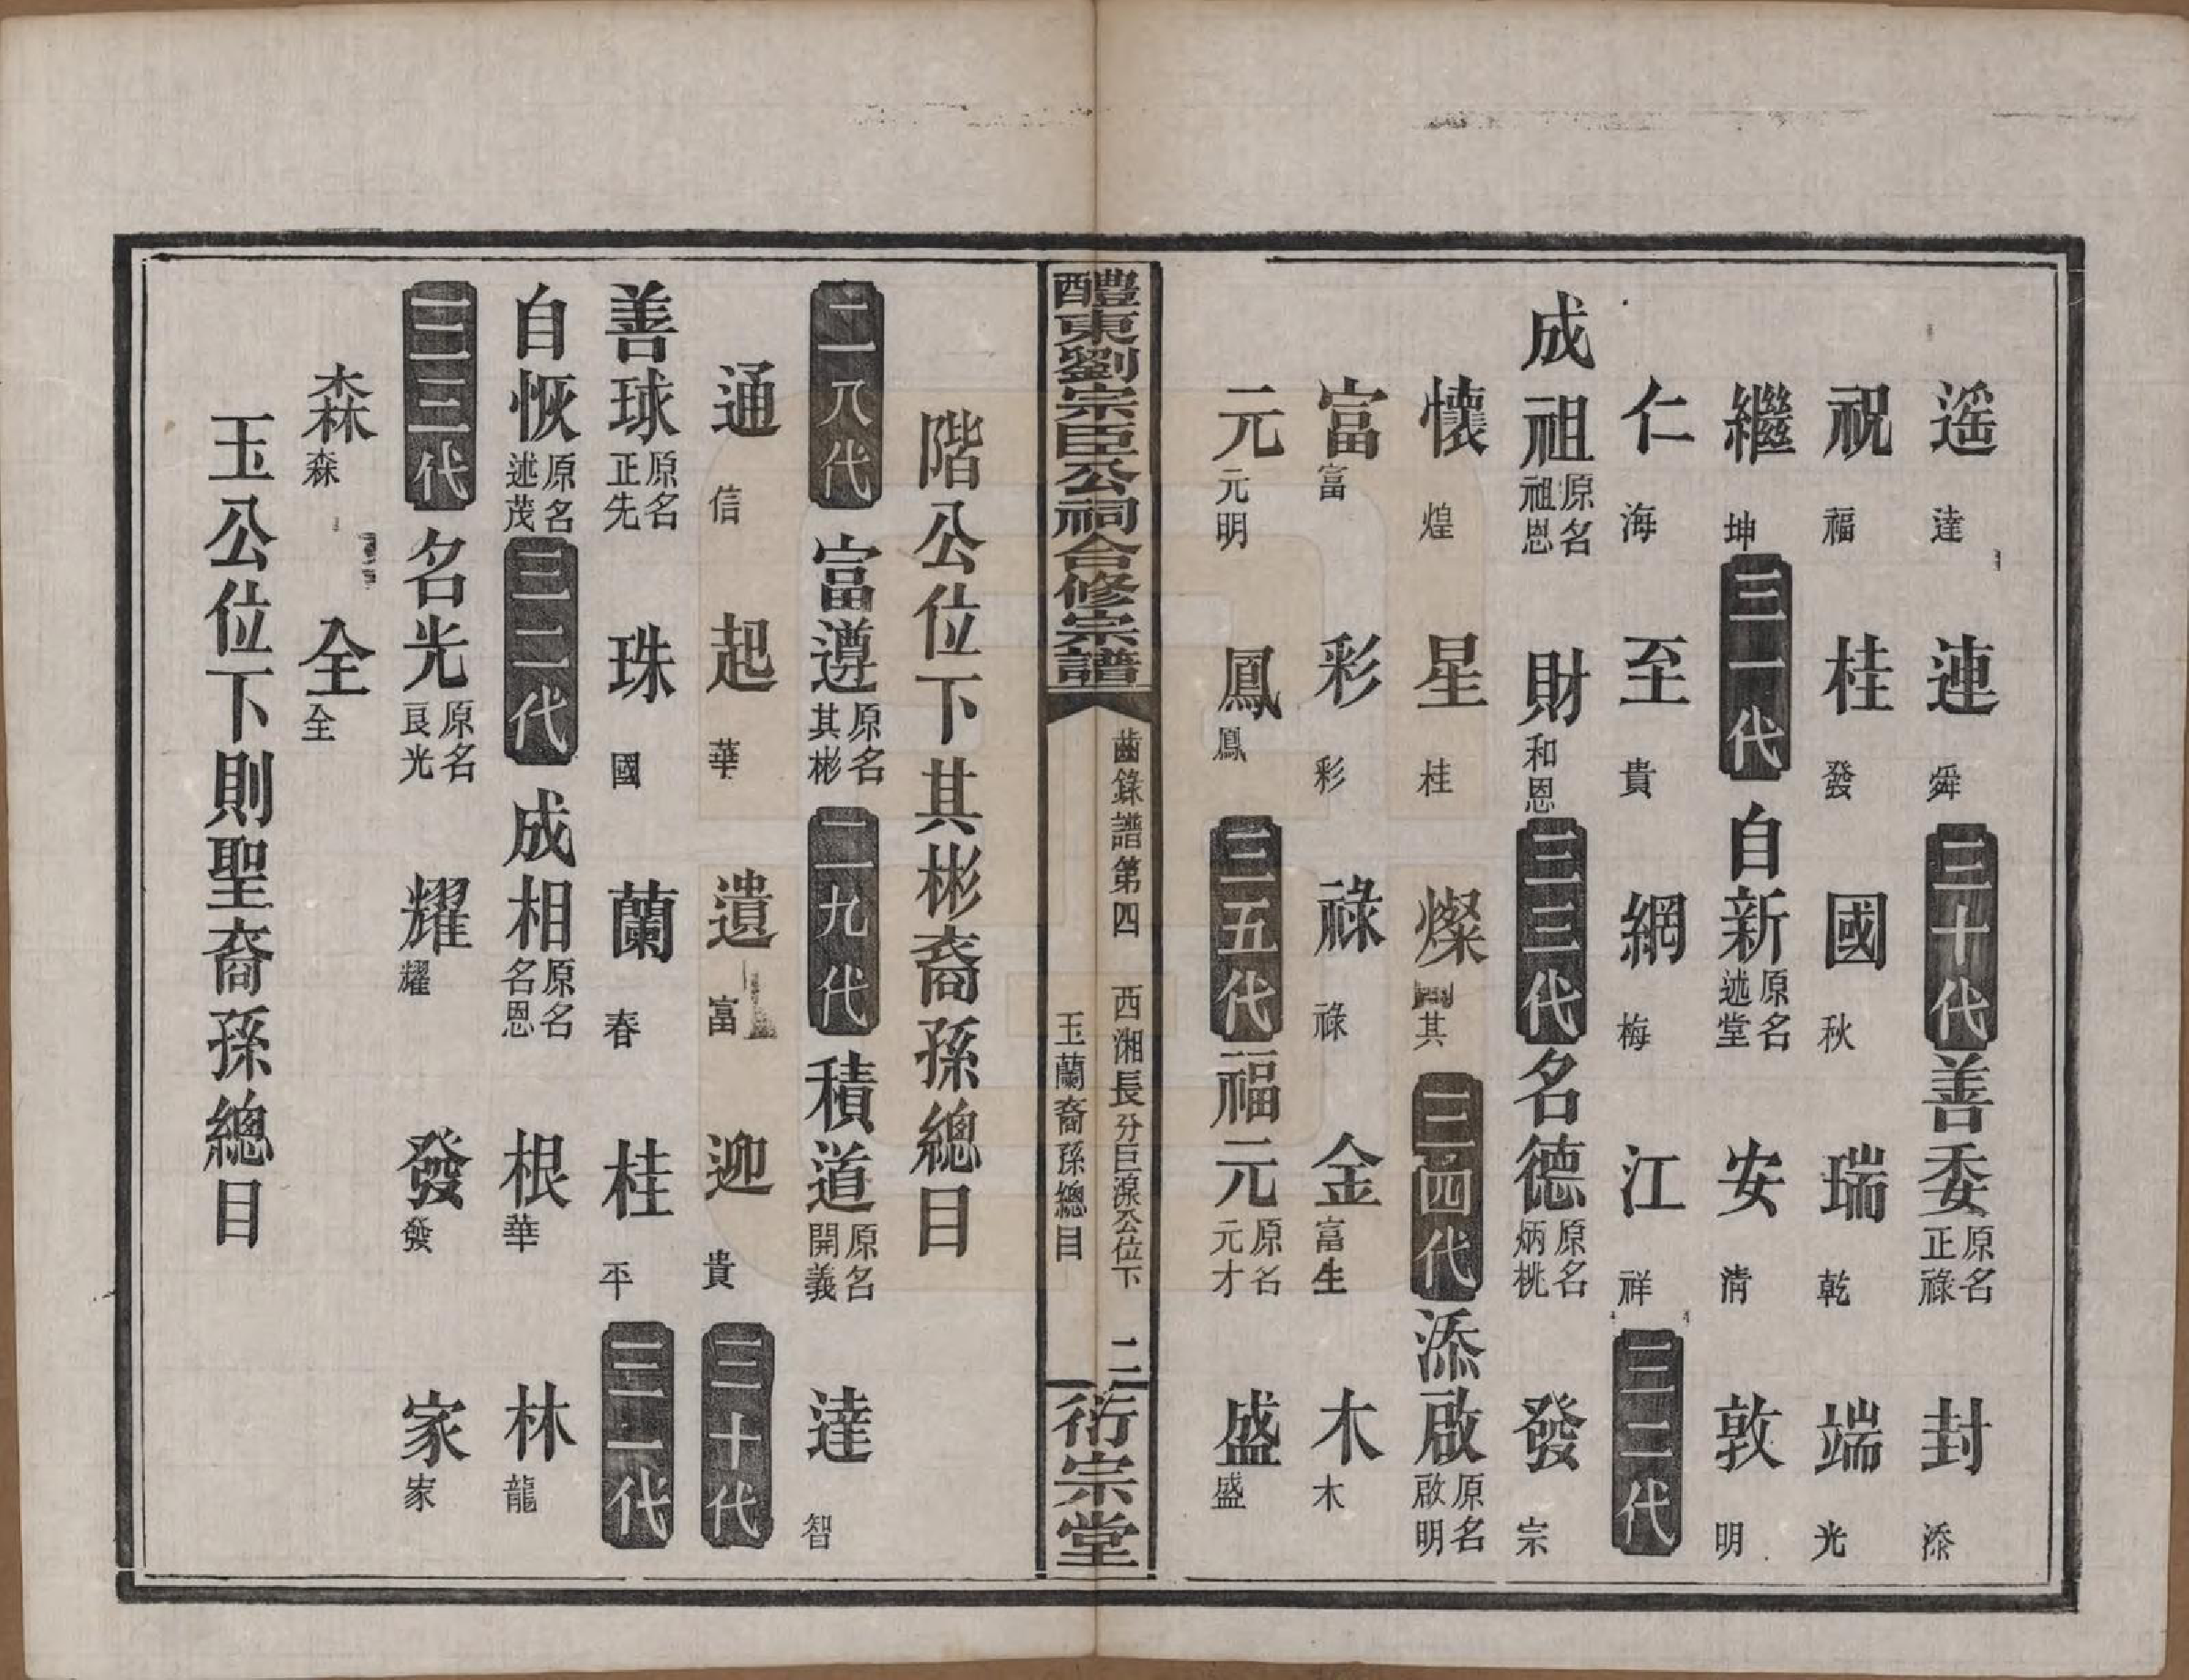 遥 達 連 舜 三十代 善委 原名正祿 封 添
祝 福 桂 發 國 秋 瑞 乾 端 光
繼 坤 三一代 自新 原名述堂 安 清 敦 明
仁 海 至 貴 網 梅 江 祥 三二代
成祖 原名祖恩 財 和恩 三三代 名德 原名炳桃 發 宗
懷 煌 星 桂 燦 其 三四代 添啟 原名啟明
富 富 彩 彩 祿 祿 金 富生 木 木
元 元明 鳳 鳳 三五代 福元 原名元才 盛 盛
醴東劉宗臣公祠合修宗譜 齒錄譜第四 西湘長分巨源公位下 玉蘭裔孫總目 二 衍宗堂
階公位下其彬裔孫總目
二八代 富遵 原名其彬 二九代 積道 原名開義 達 智
通 信 起 華 遺 富 迎 貴 三十代
善球 原名正先 珠 國 蘭 春 桂 平 三一代
自恢 原名述茂 三二代 成相 原名名恩 根 華 林 龍
三三代 名光 原名良光 耀 耀 發 發 家 家
森 森 全 全
玉公位下則聖裔孫總目